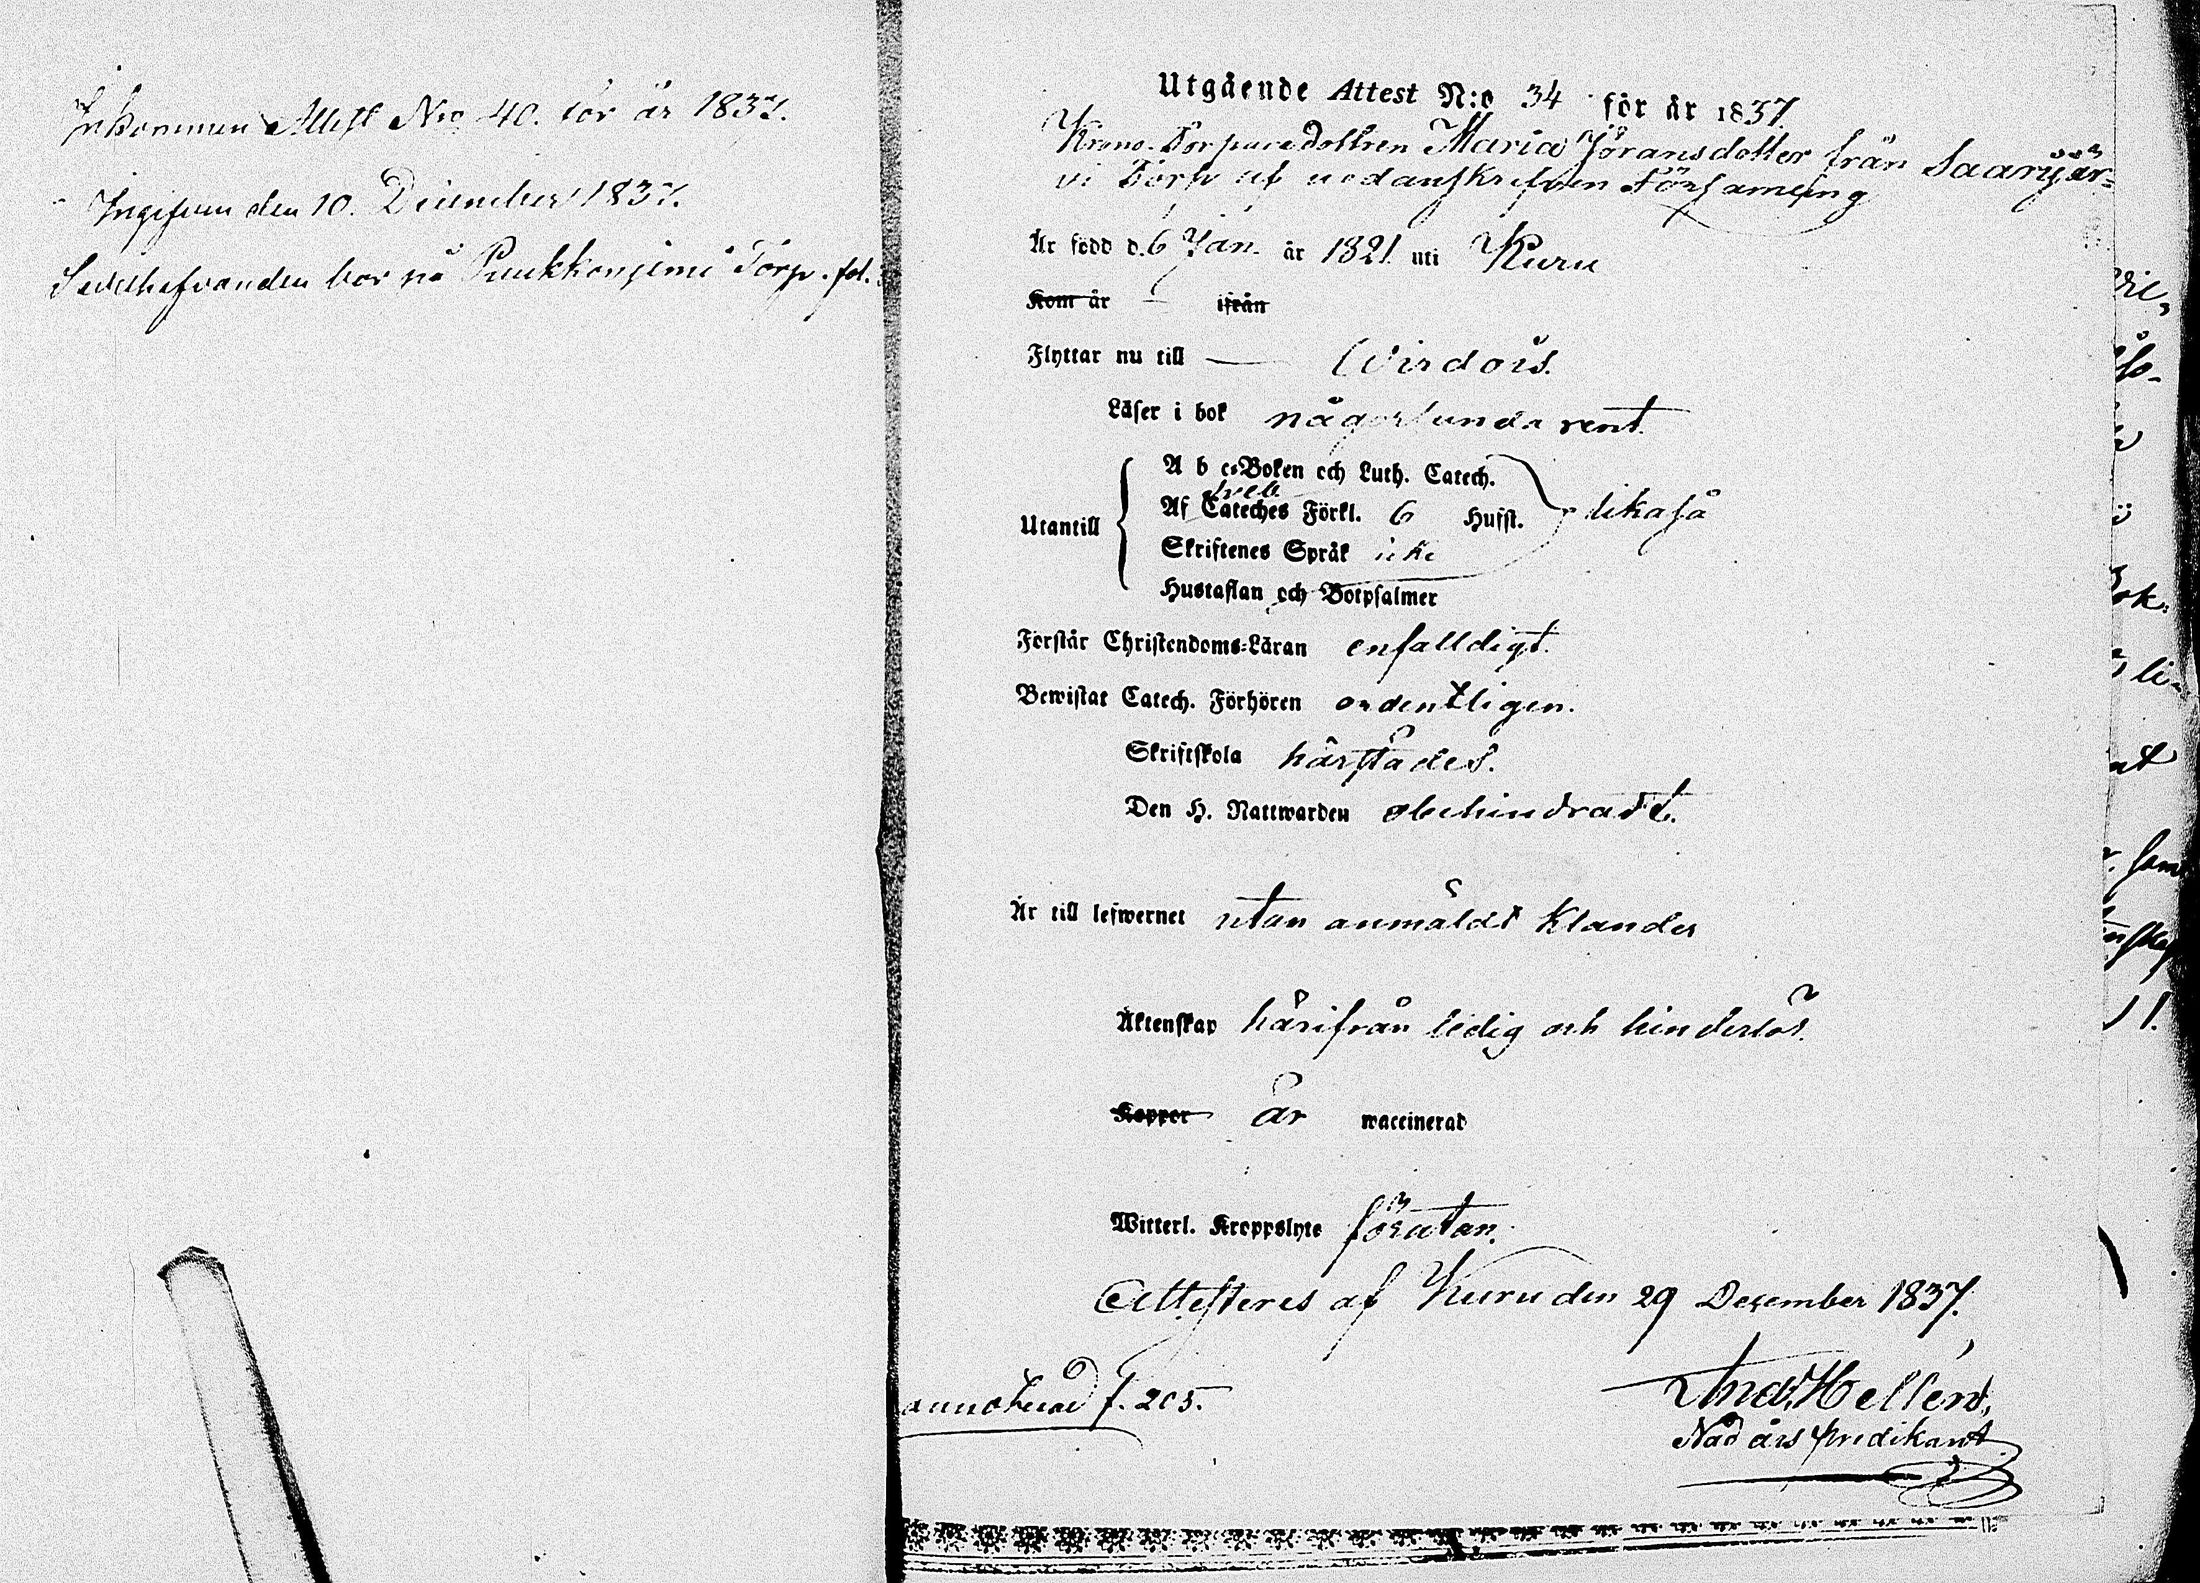 Inkommen Attest No 40. för år 1837.
Ingifven den 10. December 1837.
Sedelhafvanden bor på Puukkoniemi Torp. fol.
Utgående Attest N:o 34 för år 1837.
Krono-Torpare dottren Maria Jöransdotter från Saarijär=
vi Torp uti nedanskrefven Församling
Är född d. 6 Jan. år 1821. uti Kuru
Kom år — ifrån
Flyttar nu till — Virdois.
Läser i bok någorlunda rent.
A b c=Boken och Luth. Catech.
Sveb.
Utantill Af Cateches Förkl. 6 Hufst. likaså
Skriftenes Språk icke
Hustaflan och Botpsalmer
Förstår Christendoms=Läran enfalldigt.
Bewistat Catech. Förhören ordentligen.
Skriftskola härstädes.
Den H. Nattwarden obehindradt.
Är till lefwernet utan anmäldt klander
Äktenskap härifrån ledig och hinderlös.
Koppor är waccinerad
Witterl. Kroppslyte förutan.
Attesteres af Kuru den 29 December 1837.
And. Hellén,
annoterad f. 205.
Nåd års predikant